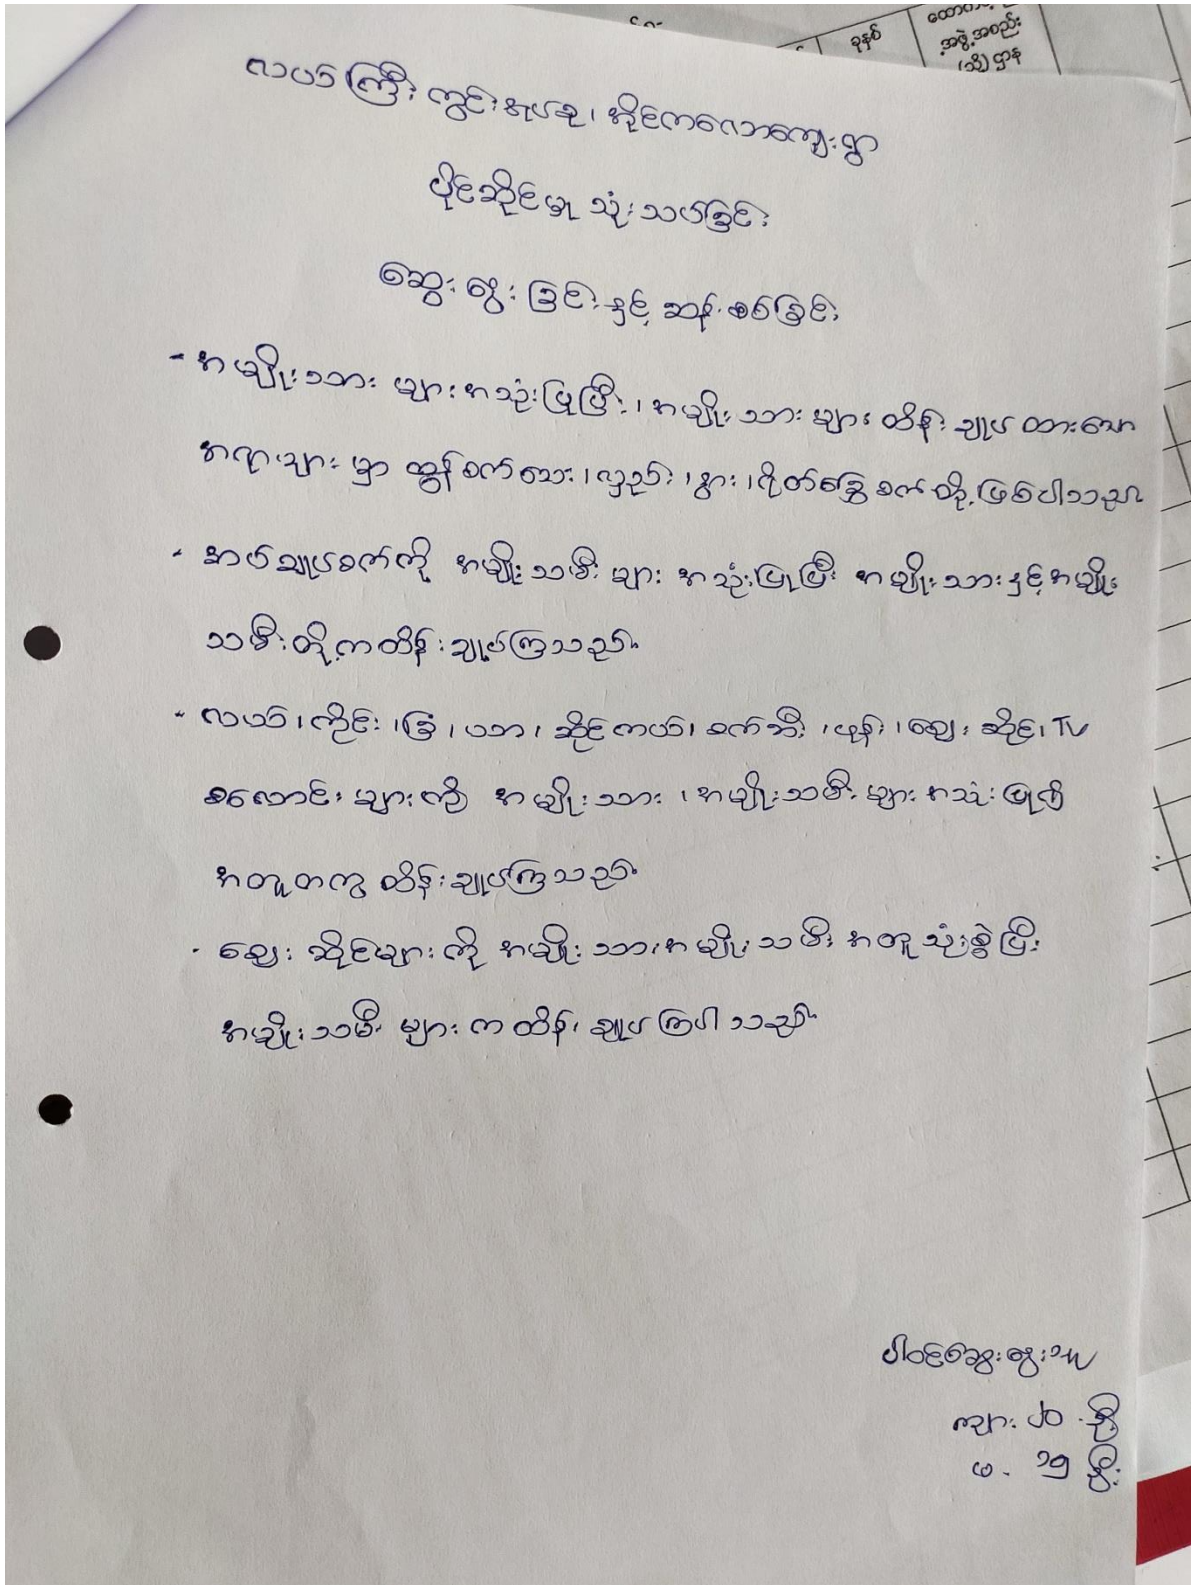 ခုနှစ်
အဖွဲ့အစည်း
(သို့) ဌာန
လယ်ကြီးကွင်းအုပ်စု၊ အိုင်ကလောကျေးရွာ
ပိုင်ဆိုင်မှု သုံးသပ်ခြင်း
ဆွေးနွေးခြင်းနှင့် ဆန်းစစ်ခြင်း
- အမျိုးသားများအသုံးပြုပြီး၊ အမျိုးသားများ ထိန်းချုပ်ထားသော
အရာများမှာ ထွန်စက်လေး၊ လှည်း၊ နွား၊ ရိတ်ခြွေစက်တို့ဖြစ်ပါသည်။
- အပ်ချုပ်စက်ကို အမျိုးသမီးများ အသုံးပြုပြီး အမျိုးသားနှင့်အမျိုး
သမီးတို့ကထိန်းချုပ်ကြသည်။
- လယ်၊ ကိုင်း၊ ခြံ၊ ယာ၊ ဆိုင်ကယ်၊ စက်ဘီး၊ ဖုန်း၊ ဈေးဆိုင်၊ TV
စလောင်းများကို အမျိုးသား၊ အမျိုးသမီးများအသုံးပြု၍
အတူတကွထိန်းချုပ်ကြသည်။
- ဈေးဆိုင်များကို အမျိုးသား၊ အမျိုးသမီး အတူသုံးစွဲပြီး
အမျိုးသမီးများကထိန်းချုပ်ကြပါသည်။
ပါဝင်ဆွေးနွေးသူ
ကျား ၂၀ ဦး
မ - ၁၅ ဦး